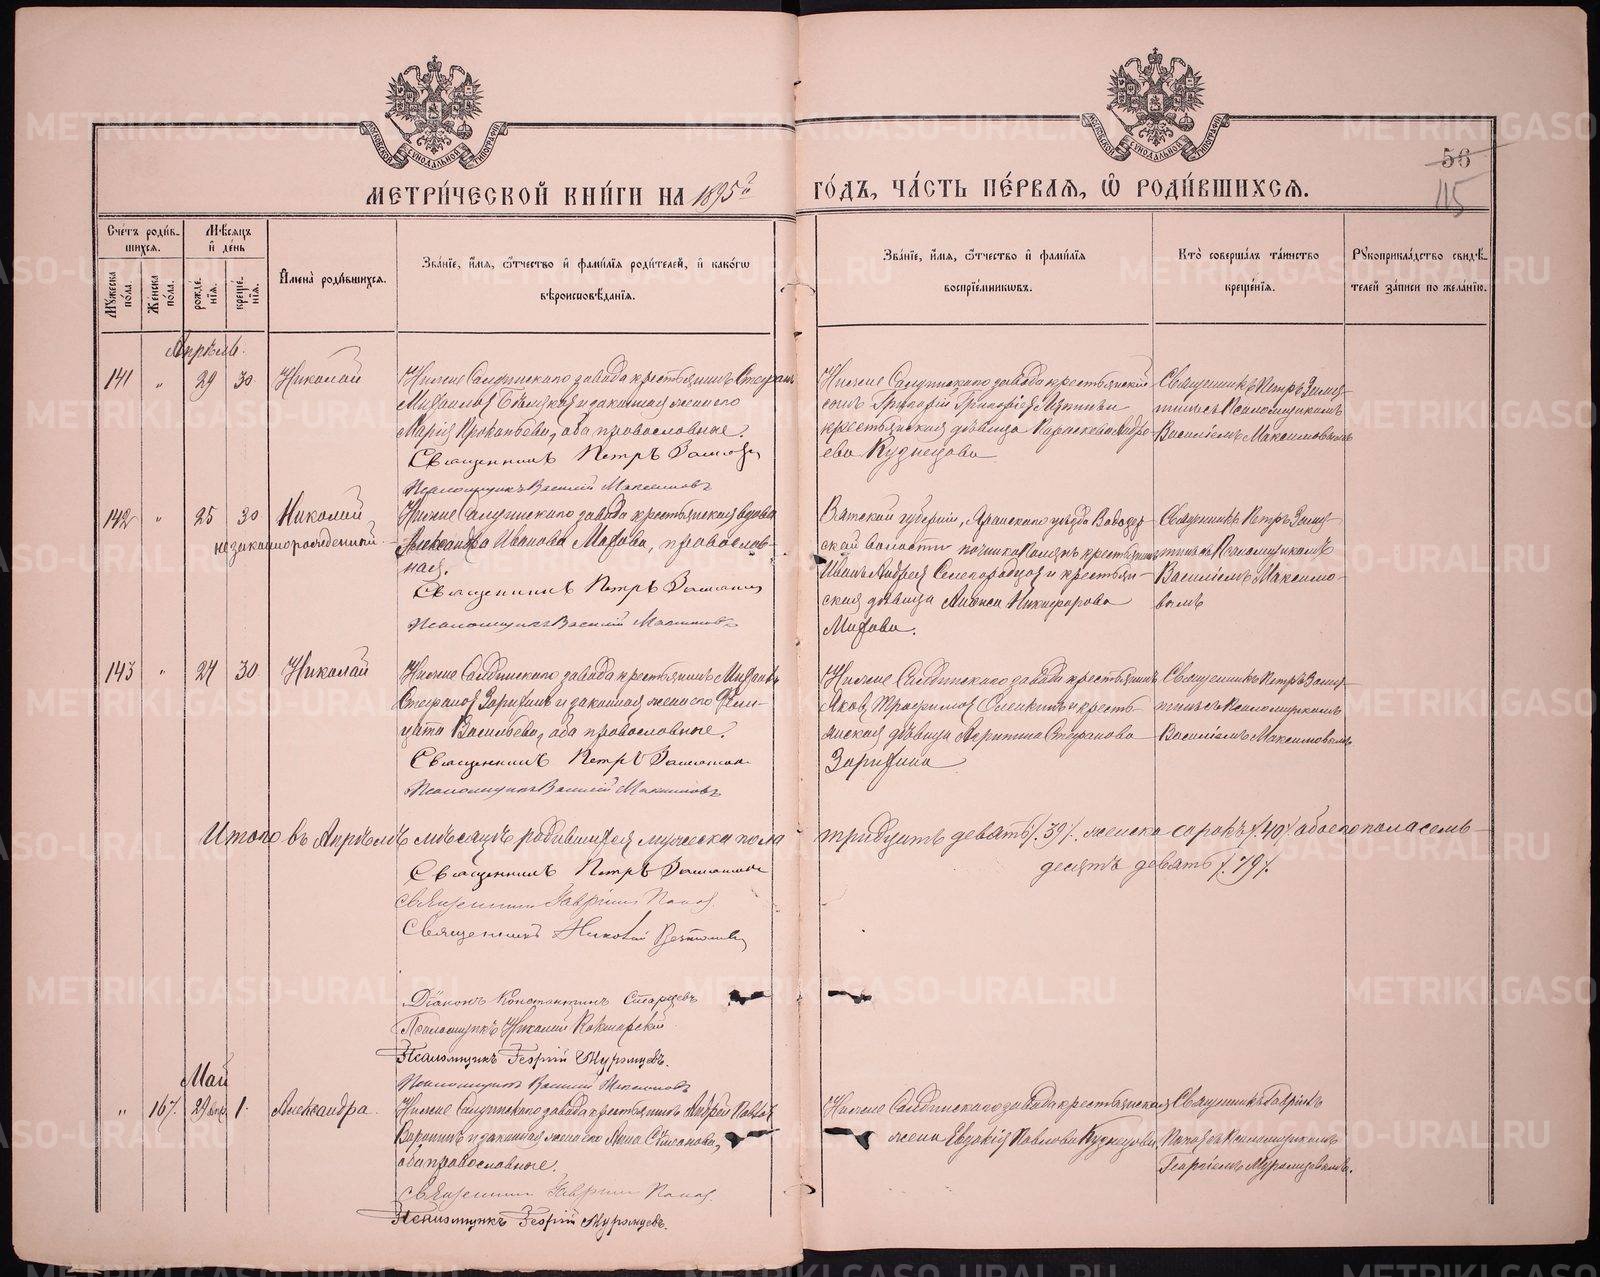 МОСКОВСКОЙ СѴНОДАЛЬНОЙ ТИПОГРАФІИ
МОСКОВСКОЙ СѴНОДАЛЬНОЙ ТИПОГРАФІИ
56
115
МЕТРИ́ЧЕСКОЙ КНИ́ГИ НА 1895й
ГО́ДЪ, ЧА́СТЬ ПЕ́РВАѦ, Ѽ РОДИ́ВШИХСѦ.
Сче́тъ роди́в-
шихсѧ.
Мꙋ́жеска по́ла.
Же́нска по́ла.
Мѣ́сѧцъ и҆ де́нь
рожде́нїѧ.
креще́нїѧ.
И҆мена̀ роди́вшихсѧ.
Зва́нїе, и҆́мѧ, ѻ҆́тчество и҆ фами́лїѧ роди́телей, и҆ како́гѡ
вѣроисповѣ́данїѧ.
Зва́нїе, и҆́мѧ, ѻ҆́тчество и҆ фами́лїѧ
воспрїе́мникѡвъ.
Кто̀ соверша́лъ та́инство
креще́нїѧ.
Рꙋкоприкла́дство свидѣ́-
телей за́писи по жела́нїю.
Апрѣль.
141 " 29 30 Николай
Нижне Салдинскаго завода крестьянинъ Стефанъ
Михаиловъ
и законная жена его
Марія Прокопьева, оба православные.
Священникъ Петръ
Псаломщикъ Василій Максимовъ
Нижне Салдинскаго завода крестьянскій
сынъ Григорій Григорьевъ
крестьянская дѣвица Параскева Андре-
ева Кузнецова
Священникъ Петръ
съ Псаломщикомъ
Василіемъ Максимовымъ
142 " 25 30 Николай
незаконнорожденный
Нижне Салдинскаго завода крестьянская вдова
Александра Иванова Махова, православ-
ная.
Священникъ Петръ
Псаломщикъ Василій Максимовъ
Вятской губерніи, Яранскаго уѣзда
ской волости починка крестьянинъ
Иванъ Андреевъ и крестьян-
ская дѣвица Никифорова
Махова.
Священникъ Петръ
съ Псаломщикомъ
Василіемъ Максимо-
вымъ
143 " 24 30 Николай
Нижне Салдинскаго завода крестьянинъ Михаилъ
Стефановъ Зорихинъ и законная жена его Фели-
цата Васильева, оба православные.
Священникъ Петръ
Псаломщикъ Василій Максимовъ
Нижне Салдинскаго завода крестьянинъ
Яковъ Трофимовъ и кресть-
янская дѣвица Стефанова
Зорихина
Священникъ Петръ
съ Псаломщикомъ
Василіемъ Максимовымъ
Итого въ Апрѣлѣ мѣсяцѣ родившихся мужеска пола тридцать девять /.39/. женска сорокъ /.40/. обоего пола семь-
десятъ девять /.79/.
Священникъ Петръ
Священникъ Гавріилъ Поповъ
Священникъ Николай
Діаконъ Константинъ Старцевъ
Псаломщикъ Николай
Псаломщикъ Георгій Муромцевъ.
Псаломщикъ Василій Максимовъ
Май
" 167. 29 апр. 1. Александра.
Нижне Салдинскаго завода крестьянинъ Андрей Павловъ
Воронинъ и законная жена его Анна Степанова,
оба православные.
Священникъ Гавріилъ Поповъ
Псаломщикъ Георгій Муромцевъ.
Нижне Салдинскаго завода крестьянская
жена Евдокія Павлова Кузнецова.
Священникъ Гавріилъ
Поповъ съ Псаломщикомъ
Георгіемъ Муромцевымъ.
METRIKI.GASO-URAL.RU